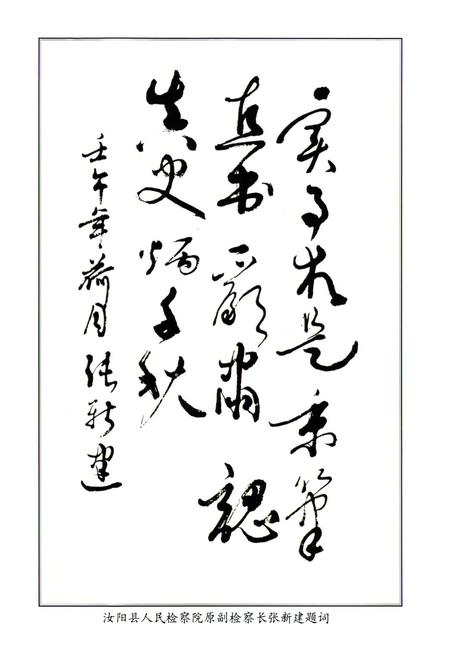 实事求是秉笔
直书严肃認
真史炳千秋
壬午年荷月 张新建
汝阳县人民检察院原副检察长张新建题词